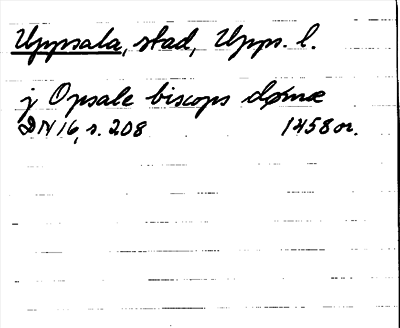 Uppsala, stad, Upps. l.
j Opsale biscops dømæ
DN 16, s. 208 1458 or.